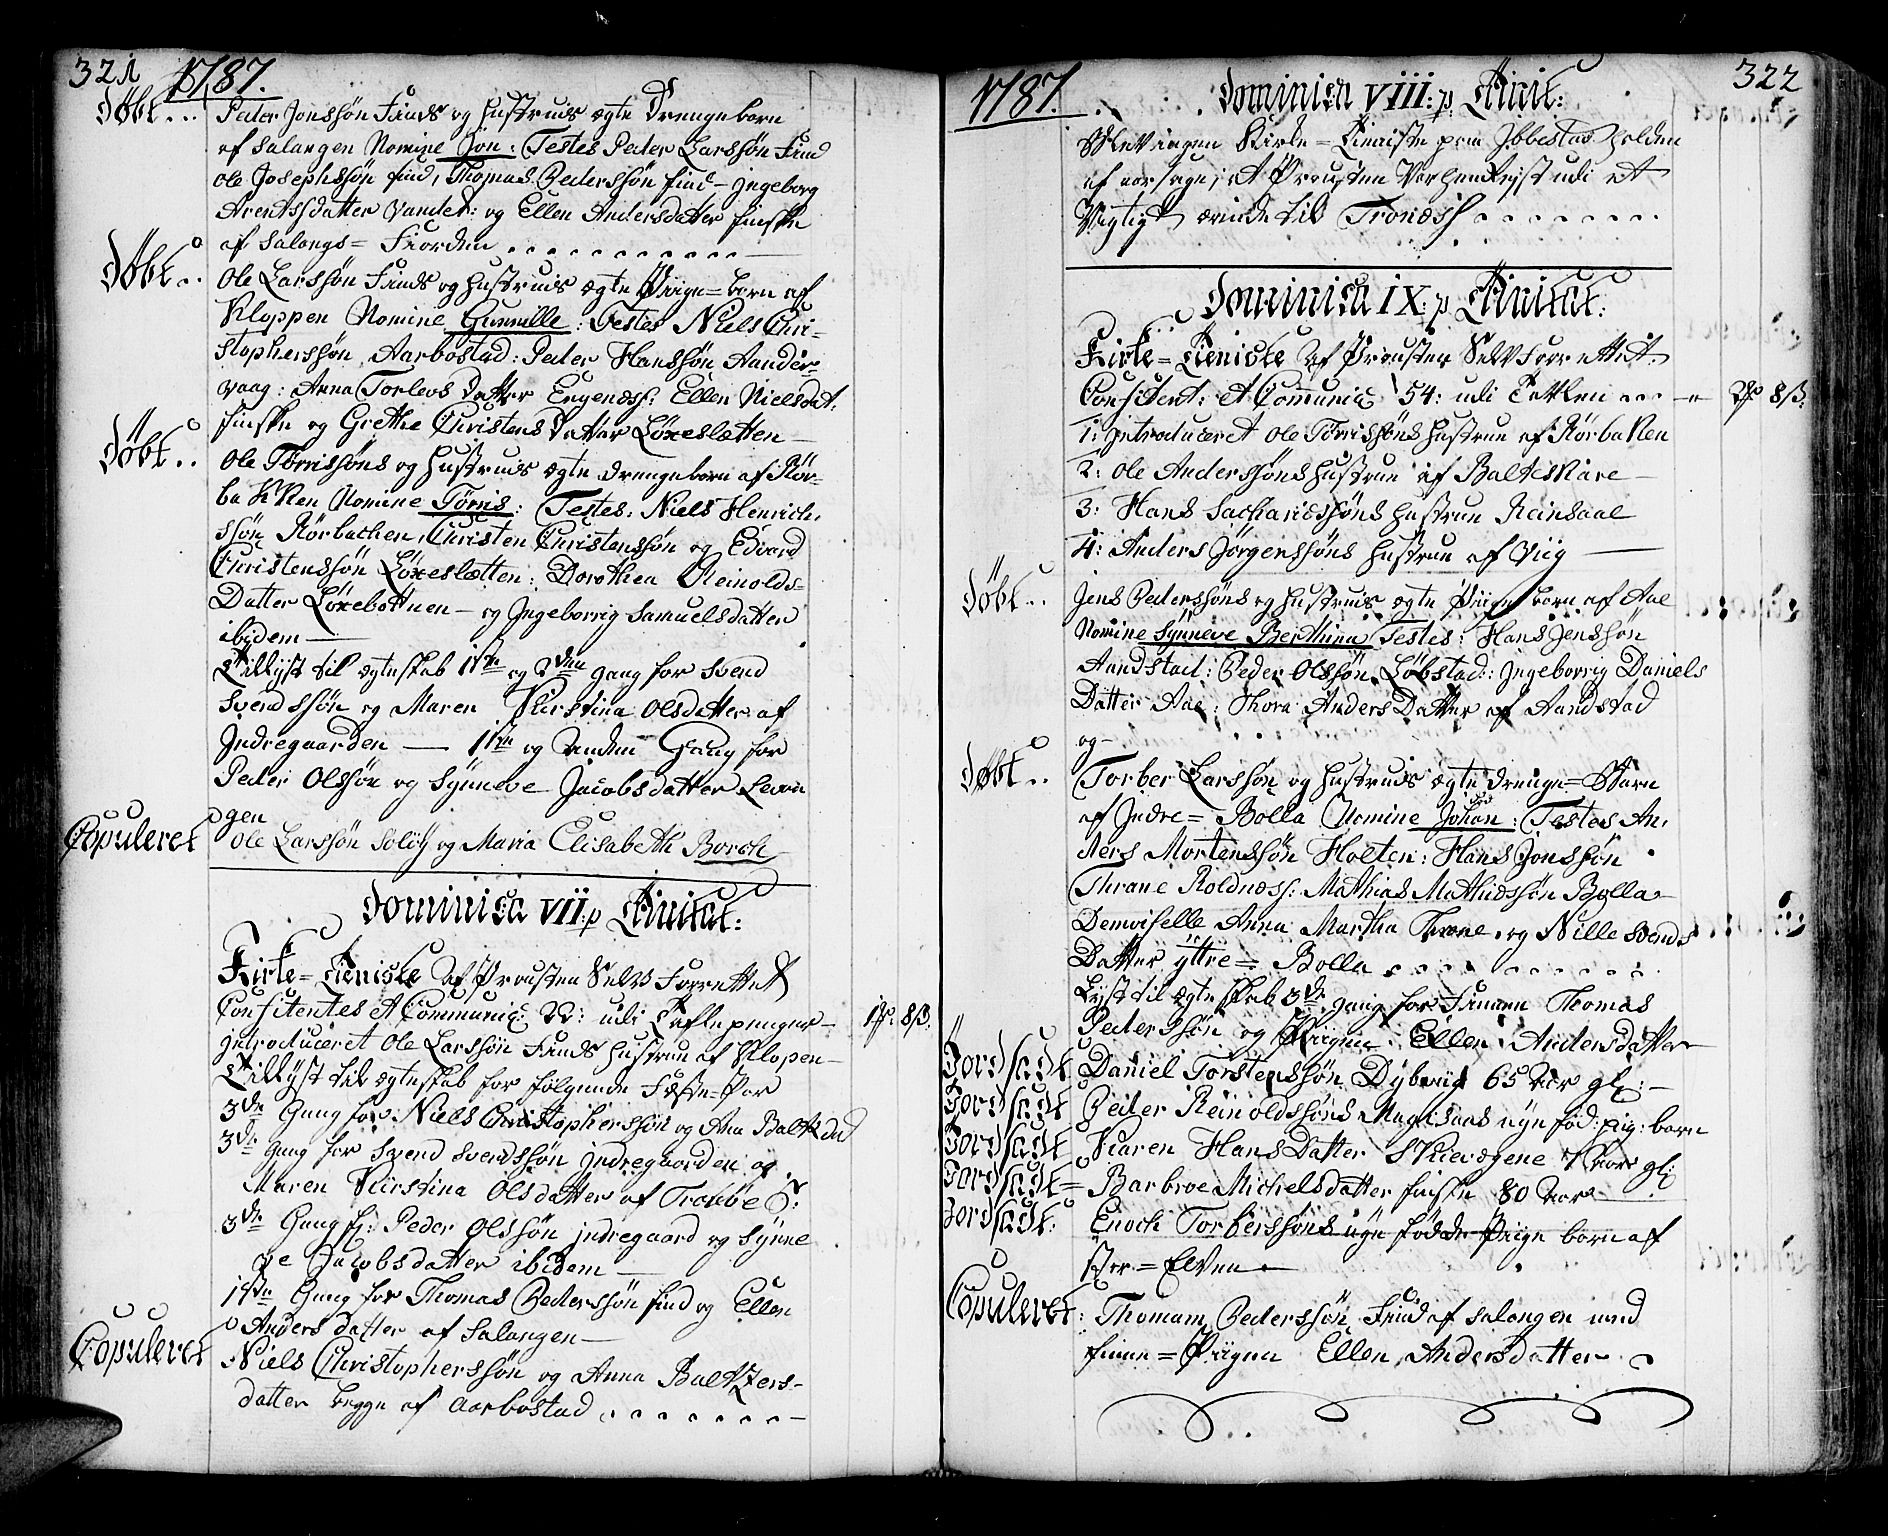 321 1787.
Döbt... Peder Jonssön Finds og Hustrues ægte Drengebarn
af Salangen Nomine Jon: Testes Peder Larssön Find
Ole Josephssön find, Thomas Pederssön find - Jngeborg
Arentssdatter Vandet: og Ellen Andersdatter finske
af Salangs= Fiorden
Döbt.. Ole Larssön Finds og Hustrues ægte Piige=barn af
Kloppen Nomine Gunnille: Testes Niels Chri-
stopherssön Aarbostad: Peder Hanssön Aander-
vaag: Anna Torlevs Datter Engenæss: Ellen Nielsdat:
finske og Grethe Christens Datter Löxeslætten
Döbt.. Ole Törrissöns og Hustrues ægte drengebarn af Rör-
bakken Nomine Törris: Testes: Niels Henrich-
ssön Rörbachen, Christen Christenssön og Edvard
Christenssön Löxeslætten: Dorothea Reinolds-
Datter Löxebottnen - og Jngeborrig Samuelsdatter
ibidem
Tillyst til ægteskab 1ste og 2den gang for Svend
Svendssön og Maren Kirstina Olsdatter af
Jndregaarden — 1ste og Anden Gang for
Peder Olssön og Synneve Jacobsdatter Levan
gen
Copuleret Ole Larssön Solöy og Maria Elisabeth Borch
Dominica VII: p Trinitat:
Kirke=Tieniste af Prousten Selv Forrettet
Confitentes et Communic: 22: udi Tafle penger 8ß:
Jntroduceret Ole Larssön Finds Hustrue af Klopen
Tillyst til ægteskab for fölgende Fæste-Par
3de Gang for Niels Christopherssön og Ana Baltz dat
3de Gang for Svend Svendssön Jndregaarden og
Maren Kirstina Olsdatter af
3de Gang f: Peder Olssön Jndregaard og Synne
ve Jacobsdatter ibidem
1ste Gang for Thomas Pederssön find og Ellen
Anders datter af Salangen
Copuleret Niels Christopherssön og Anna Baltzers-
datter begge af Aarbostad
1787. Dominica VIII: p Trinit: 322
Blev ingen Kirke=Tieniste paa Jbbestad holden
af aarsage, at Prousten Var henreyst udi et
Vigtigt ærinde til Tronæss
Dominica IX: p Trinitat:
Kirke=Tieniste af Prousten Selv Forrettet
Confitent: et Communic 54: udi Tavlen 8ß:
1: Jntroduceret Ole Törrissöns Hustrue af Rörbakken
2: Ole Anderssöns Hustrue af Balteskare
3: Hans Sachariæssöns Hustrue Reinsaae
4: Anders Jörgenssöns Hustrue af Viig
Döbt.. Jens Pederssöns og Hustrues ægte Piige barn af Aae
Nomine Synneve Berthina Testes: Hans Jenssön
Aandstad: Peder Olssön Löbstad: Jngeborrig Daniels
Datter Aae: Thora Anders Datter af Aandstad
og
Döbt.. Torber Larssön og Hustrues ægte drenge=Barn
af Jndre=Bolla Nomine Johan: Testes An-
ders Mortenssön Holten: Hans Jonssön
Thrane Roldnæss: Mathias Mathiæssön Bolla
Demoiselle Anna Martha Thrane og Nille Svends
Datter yttre=Bolla
Lyst til ægteskab 3de gang for Finnen Thomas
Pederssön og Piigen Ellen Andersdatter
Jordsadt Daniel Torstenssön Dybviig 65 Aar gl:
Jordsadt Peder Reinoldssöns nye föd: pig: barn
Jordsadt Karen Hans Datter Aar gl:
Jordsadt= Barbroe Michelsdatter finske 80 Aar
Jordsadt: Enoch Torberssöns nye födde Piige barn af
Elven
Copuleret: Thomam Pederssön Find af Salangen med
finne=Piigen Ellen Andersdatter